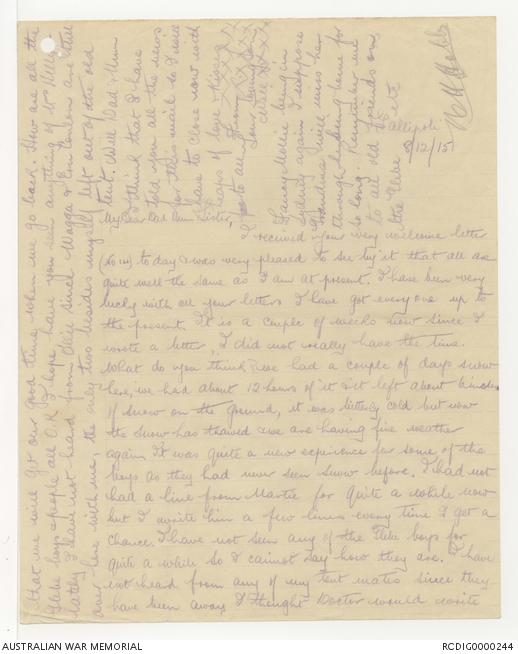 Gallipoli
8/12/15
My Dear Dad Mum Sister,
I received your very welcome letter
to day & was very pleased to see by it that all are
quite well the same as I am at present. I have been very
lucky with all your letters I have got every one up to
the present. It is a couple of weeks now since I
wrote a letter, I did not really have the time.
What do you think we had a couple of days snow
here, we had about 12 hours of it & it left about
of snow on the ground, it was bitterly cold but now
the snow has thawed & we are having fine weather
again. It was quite a new experience for some of the
boys as they had never seen snow before. I had not
had a line from Martie for quite a while now
but I write him a few lines every time I get a
chance. I have not seen any of the Glebe boys for
quite a while so I cannot say how they are. I have
not heard from any of my tent mates since they
have been away I thought Doctor would write
that we will get our good time when we go back. How are all the
Glebe boys & people all O.K. I hope, have you seen anything of
lately. I have not heard from since Wagga & are still
over here with me, the only two besides myself left out of the old
tent. Well Dad & Mum
I think that I have
told you all the news
for this mail so I will
have to close now with
heaps of love & kisses
to all from
Your loving
Fancy Mollie being in
Sydney again I suppose
Grandma will miss her
through her being home for
so long. Remember me
to all old friends on
the Glebe etc
AUSTRALIAN WAR MEMORIAL
RCDIG0000244